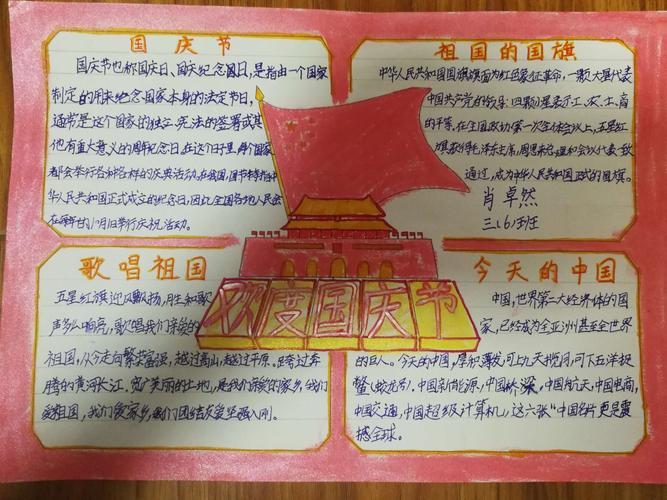 国庆节
国庆节也称国庆日、国庆纪念日,是指由一个国家
制定的用来纪念国家本身的法定节日,
通常是这个国家的独立、宪法的签署或其
他有重大意义的周年纪念日。在这个日子里,每个国家
都会举行各种各样的庆典活动。在我国,国节
华人民共和国正式成立的纪念日,因此全国各地人民会
在每年的10月1日举行庆祝活动。
祖国的国旗
中华人民共和国国旗旗面为红色象征革命,一颗大星代表
中国共产党的领导,四颗小星表示工、农、士、商
的平等,在全国政协第一次全体会议上,五星红
旗获得毛泽东主席,周恩来总理和会议代表一致
通过,成为中华人民共和国正式的国旗。
肖卓然
三(6)班
欢度国庆节
歌唱祖国
五星红旗迎风飘扬,胜利歌
声多么响亮,歌唱我们亲爱的
祖国,从今走向繁荣富强,越过高山,越过平原。跨过奔
腾的黄河长江,宽广美丽的土地,是我们亲爱的家乡,我们
爱祖国,我们爱家乡,我们团结友爱坚强入刚。
今天的中国
中国,世界第二大经济体的国
家,已经成为全亚洲甚至全世界
的巨人。今天的中国,厚积薄发,可上九天揽月,可下五洋捉
鳖(蛟龙号)。中国新能源,中国桥梁,中国航天,中国电商,
中国交通,中国超级计算机,这六张“中国名片更是震
撼全球。